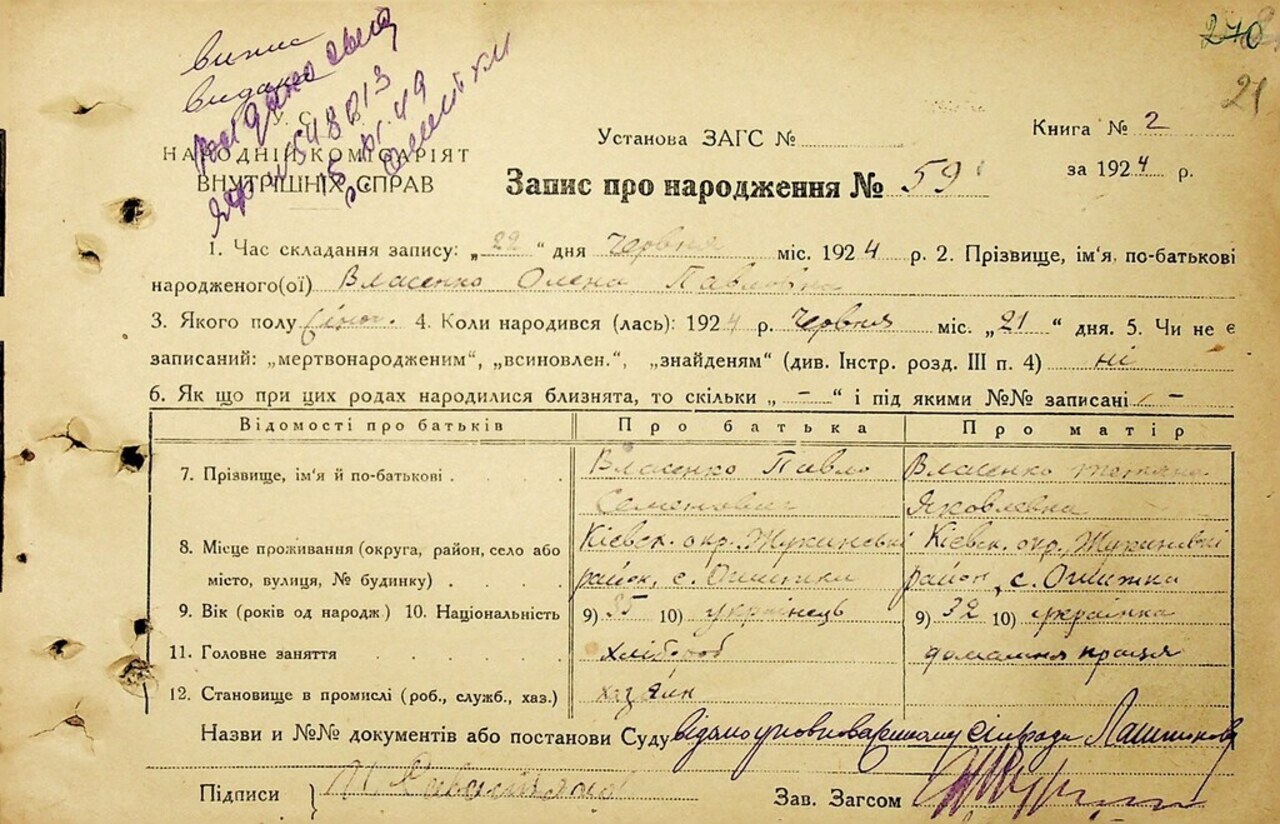 270
21
випис
У. С.
НАРОДНІЙ КОМІСАРІЯТ
ВНУТРІШНІХ СПРАВ
Установа ЗАГС №
Книга № 2
за 1924 р.
Запис про народження № 59
1. Час складання запису: „22“ дня Червня міс. 1924 р. 2. Прізвище, ім'я, по-батькові
народженого(ої) Власенко Олена Павловна
3. Якого полу жіноч. 4. Коли народився (лась): 1924 р. Червня міс. „21“ дня. 5. Чи не є
записаний: „мертвонародженим“, „всиновлен.“, „знайденям“ (див. Інстр. розд. III п. 4) ні
6. Як що при цих родах народилися близнята, то скільки „ – “ і під якими №№ записані –
Відомості про батьків Про батька Про матір
7. Прізвище, ім'я й по-батькові Власенко Павло Власенко Тетяна
Семенович Яковлевна
8. Місце проживання (округа, район, село або Київск. окр. Жукинські Київск. окр. Жукинські
місто, вулиця, № будинку) район, с. район, с.
9. Вік (років од народж) 10. Національність 9) 35 10) українець 9) 32 10) українка
11. Головне заняття хлібороб домашня праця
12. Становище в промислі (роб., служб., хаз.) хазяїн
Назви и №№ документів або постанови Суду
Підписи
Зав. Загсом